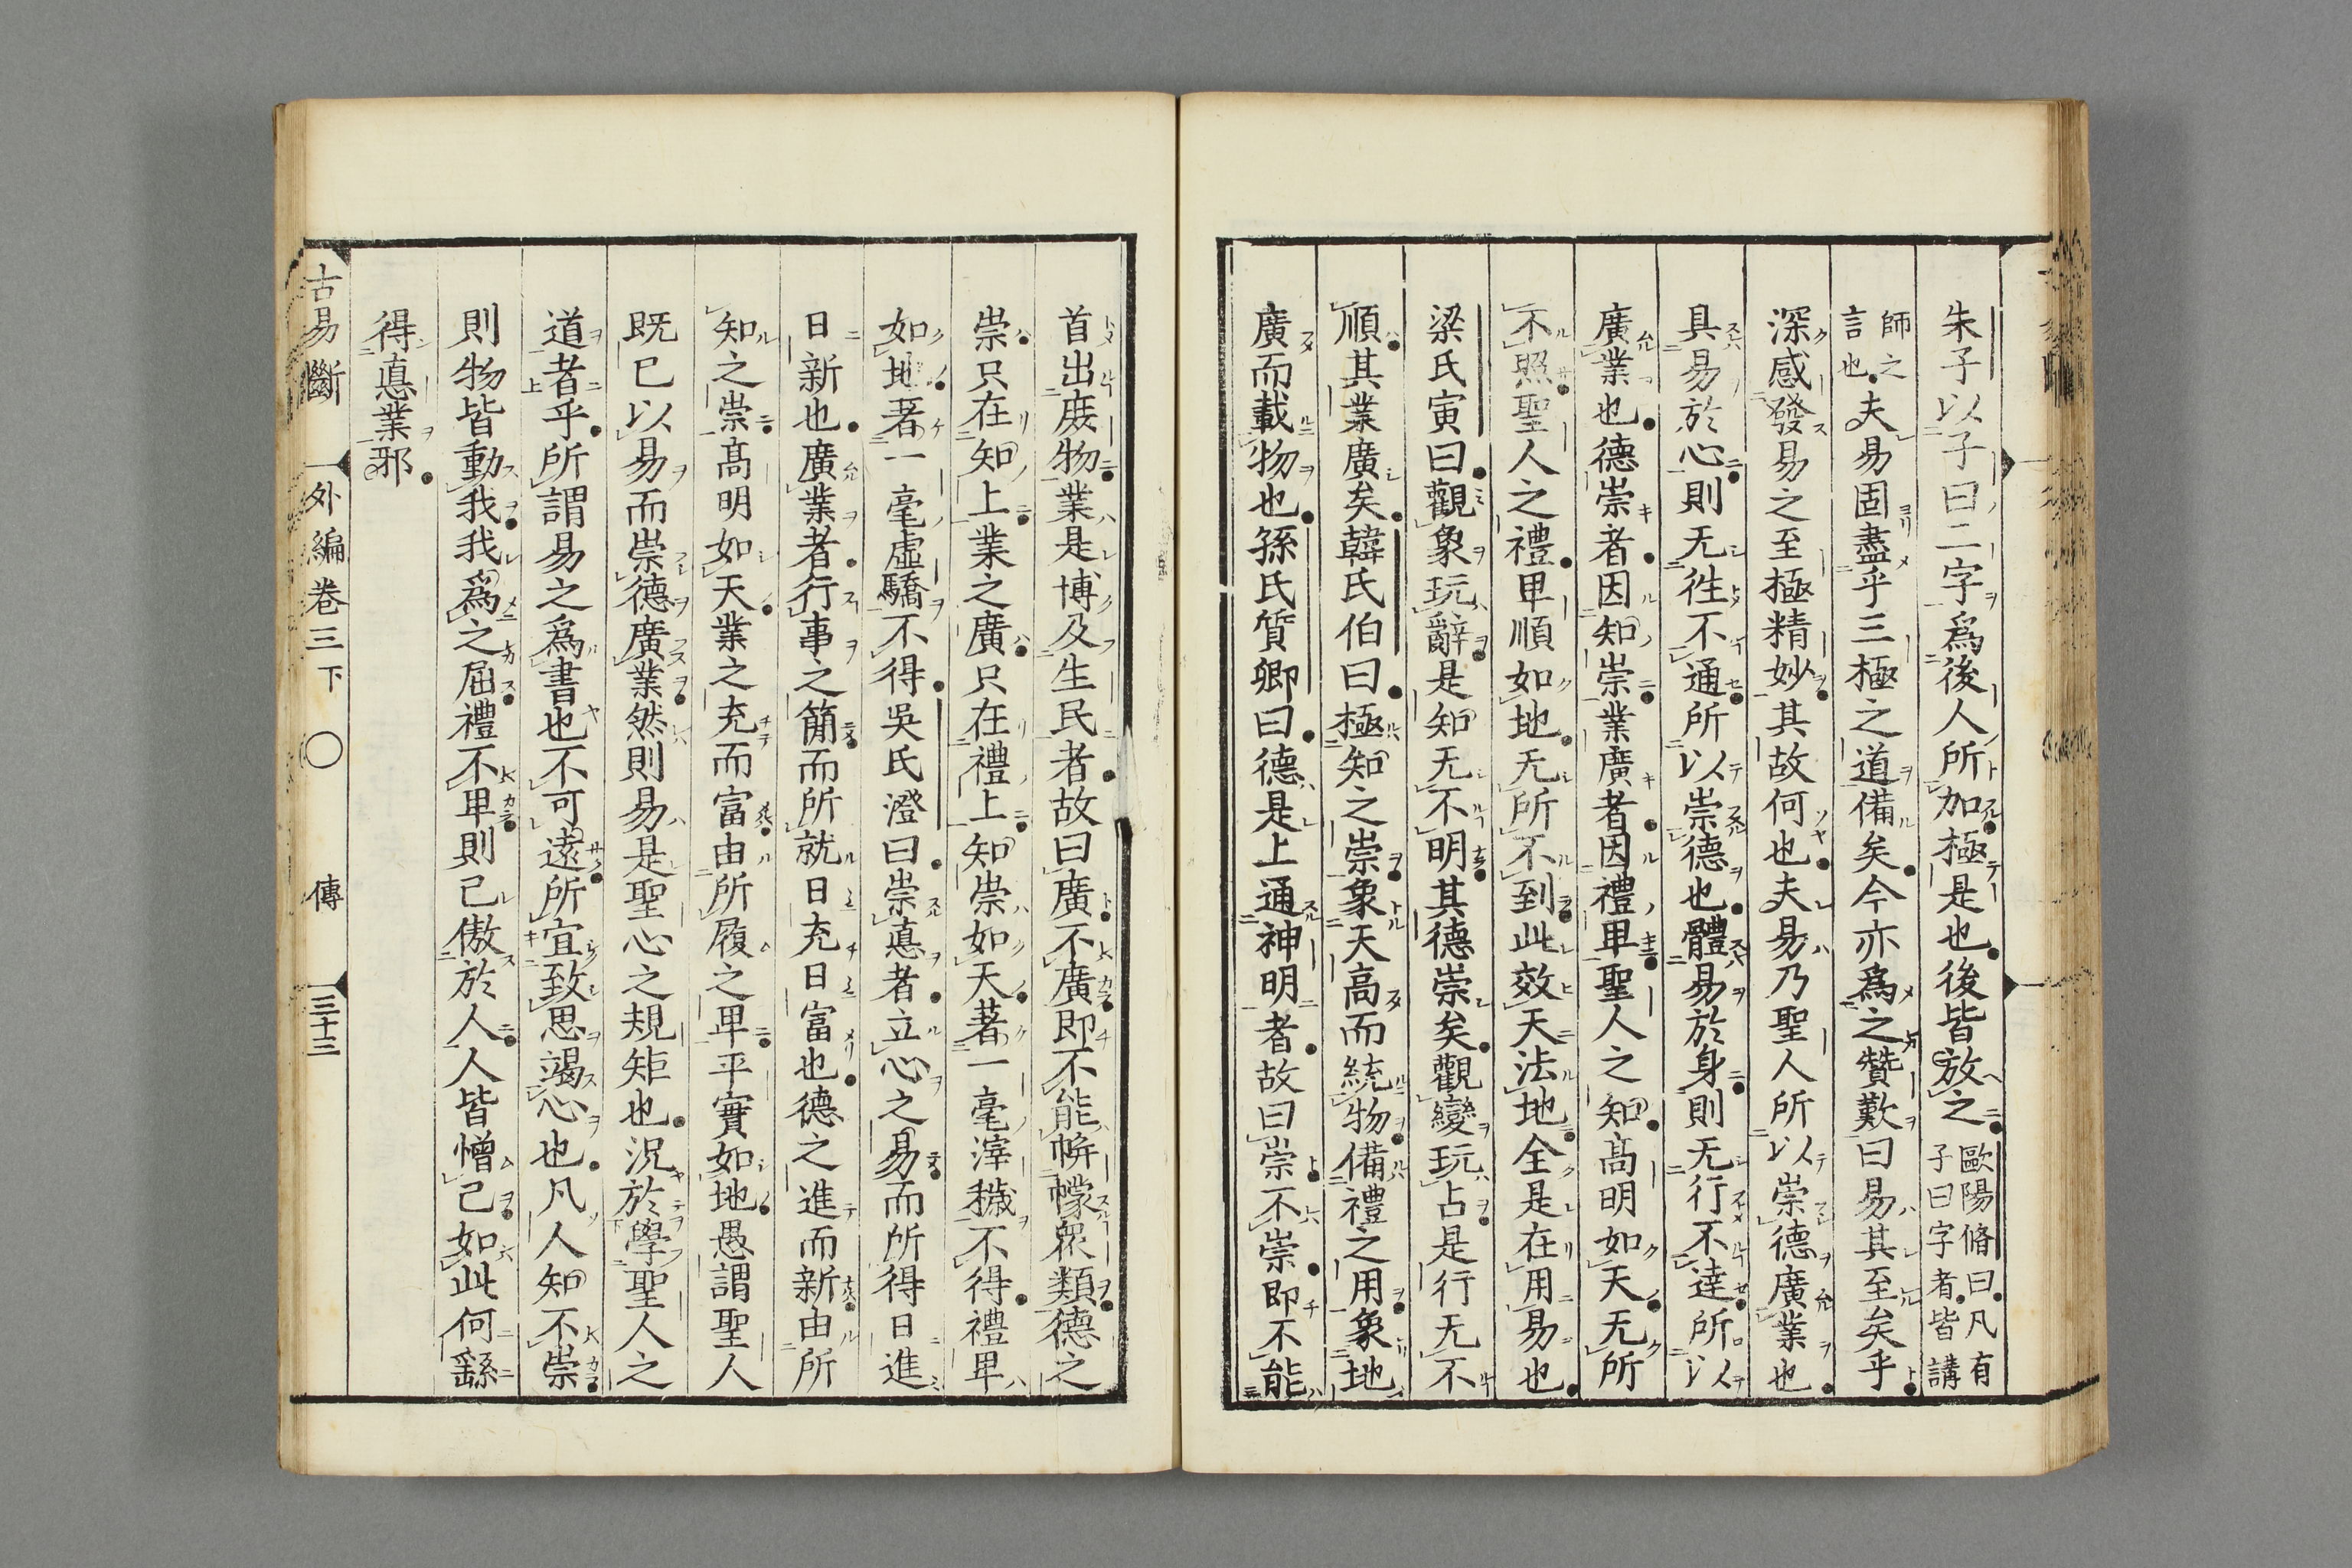 朱子以子曰二字爲後人所加極是也後皆放之歐陽脩曰凡有子曰字者皆講
師之言也夫易固盡乎三極之道備矣今亦爲之贊歎曰易其至矣乎
深感發易之至極精妙其故何也夫易乃聖人所以崇德廣業也
具易於心則无徃不通所以崇德也體易於身則无行不達所以
廣業也德崇者因知崇業廣者因禮卑聖人之知高明如天无所
不照聖人之禮卑順如地无所不到此效天法地全是在用易也
梁氏寅曰觀象玩辭是知无不明其德崇矣觀變玩占是行无不
順其業廣矣韓氏伯曰極知之崇象天高而統物備禮之用象地
廣而載物也孫氏質卿曰德是上通神明者故曰崇不崇即不能
首出庻物業是博及生民者故曰廣不廣即不能帲幪衆類德之
崇只在知上業之廣只在禮上知崇如天著一毫滓穢不得禮卑
如地著一毫虛驕不得吳氏澄曰崇悳者立心之易而所得日進
日新也廣業者行事之簡而所就日充日富也德之進而新由所
知之崇高明如天業之充而富由所履之卑平實如地愚謂聖人
既已以易而崇德廣業然則易是聖心之規矩也況於學聖人之
道者乎所謂易之爲書也不可遠所宜致思竭心也凡人知不崇
則物皆動我我爲之屈禮不卑則己傲於人人皆憎己如此何繇
得悳業邪
古易斷 外編卷三下 〇 傳 三十三